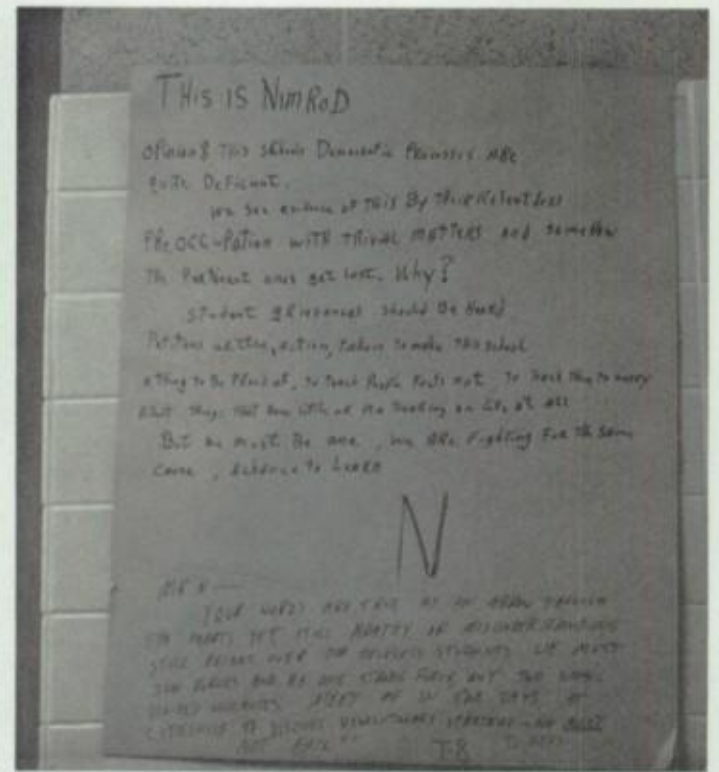 THIS IS NIMROD
OPinion: This schools Democratic Processes ARe
quite Deficient.
We see evidence of THIS By Their Relentless
PReOCCuPation WITH TRivial MATTERS and somehow
The Pertinent ones get lost. Why?
STudent gRievances should Be Heard
Petitions written, action, taken to make This school
a Thing to Be PRoud of, to Teach People Facts not To Teach Them to worry
about Things That have little or no Bearing on Life at all
But we must Be one, we ARe Fighting FoR The Same
Cause, a chance to LeaRn
N
MR N —
YOUR WORDS ARE TRUE AS AN ARROW THROUGH
HEARTS YET STILL APATHY OR MISUNDERSTANDING
STILL REIGNS OVER THE STUDENTS WE MUST
JOIN FORCES AND BE ONE STRONG FORCE NOT TWO
MEET ME IN TWO DAYS AT
TO DISCUSS REVOLUTIONARY WE MUST
NOT FAIL
T-8